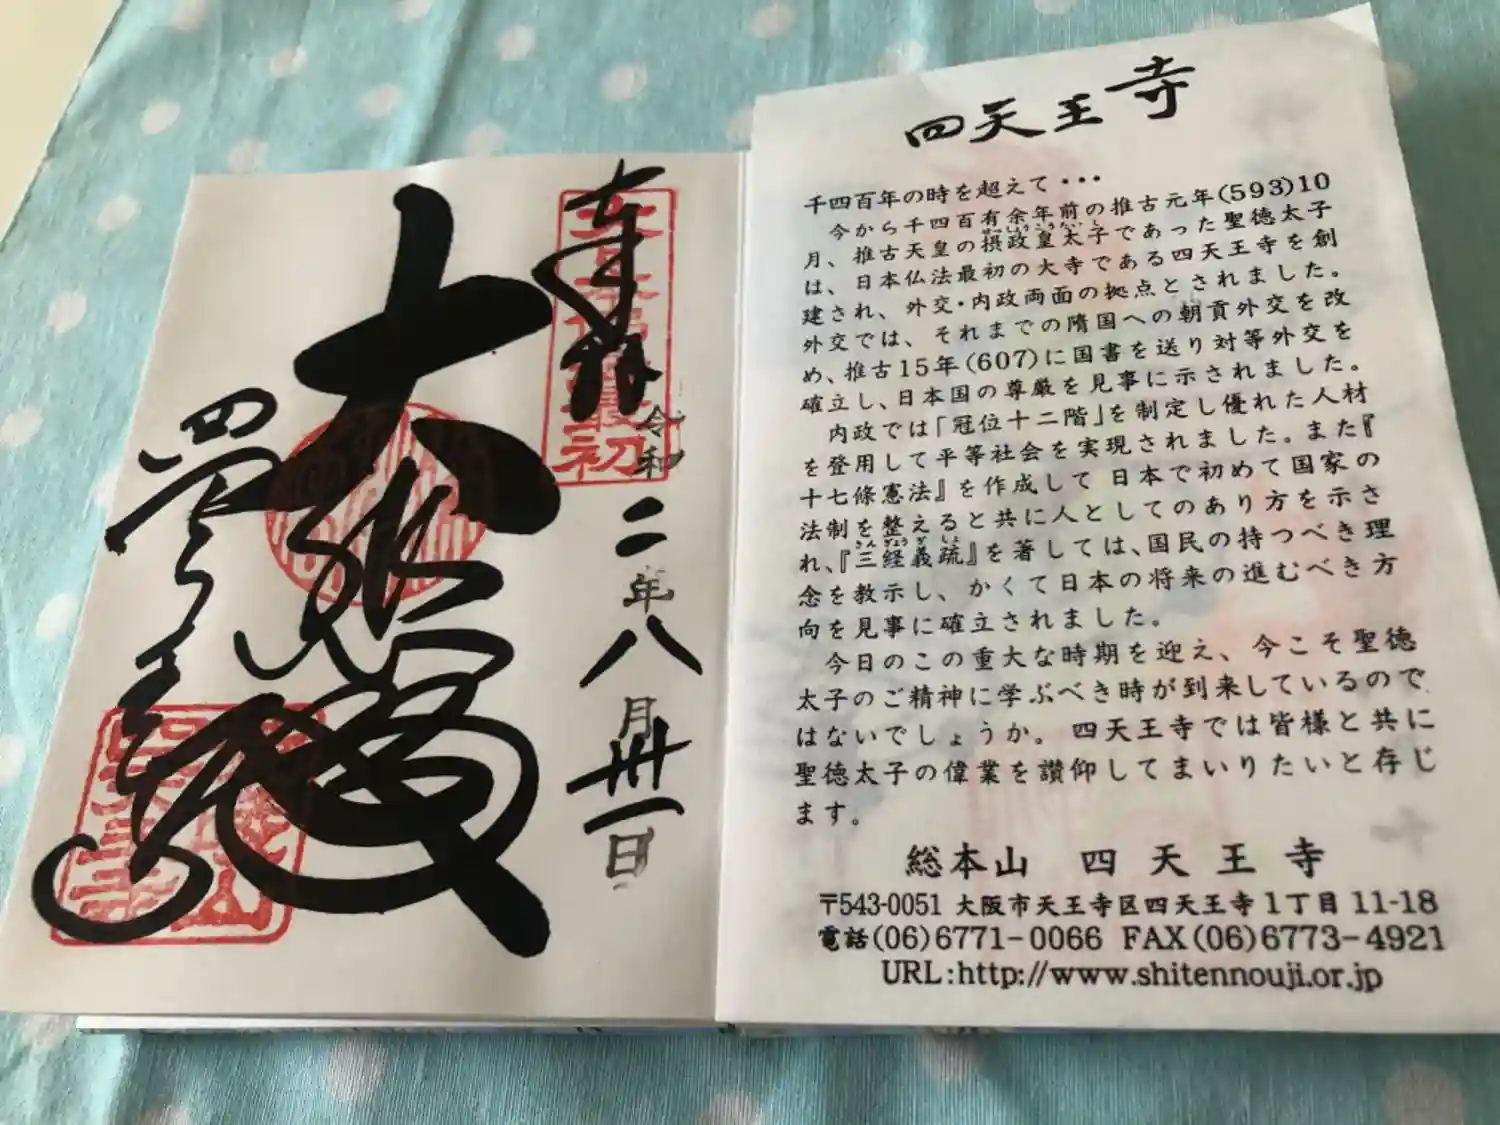 四天王寺
千四百年の時を超えて・・・
今から千四百有余年前の推古元年(593)10
月、推古天皇の摂政皇太子であった聖徳太子
は、日本仏法最初の大寺である四天王寺を創
建され、外交・内政両面の拠点とされました。
外交では、それまでの隋国への朝貢外交を改
め、推古15年(607)に国書を送り対等外交を
確立し、日本国の尊厳を見事に示されました。
内政では「冠位十二階」を制定し優れた人材
を登用して平等社会を実現されました。また『
十七條憲法』を作成して日本で初めて国家の
法制を整えると共に人としてのあり方を示さ
れ、『三経義疏』を著しては、国民の持つべき理
念を教示し、かくて日本の将来の進むべき方
向を見事に確立されました。
今日のこの重大な時期を迎え、今こそ聖徳
太子のご精神に学ぶべき時が到来しているので
はないでしょうか。四天王寺では皆様と共に
聖徳太子の偉業を讃仰してまいりたいと存じ
ます。
総本山 四天王寺
〒543-0051 大阪市天王寺区四天王寺1丁目11-18
電話(06)6771-0066 FAX(06)6773-4921
URL:http://www.shitennouji.or.jp
奉拝
令和二年八月卅一日
大
四天王寺